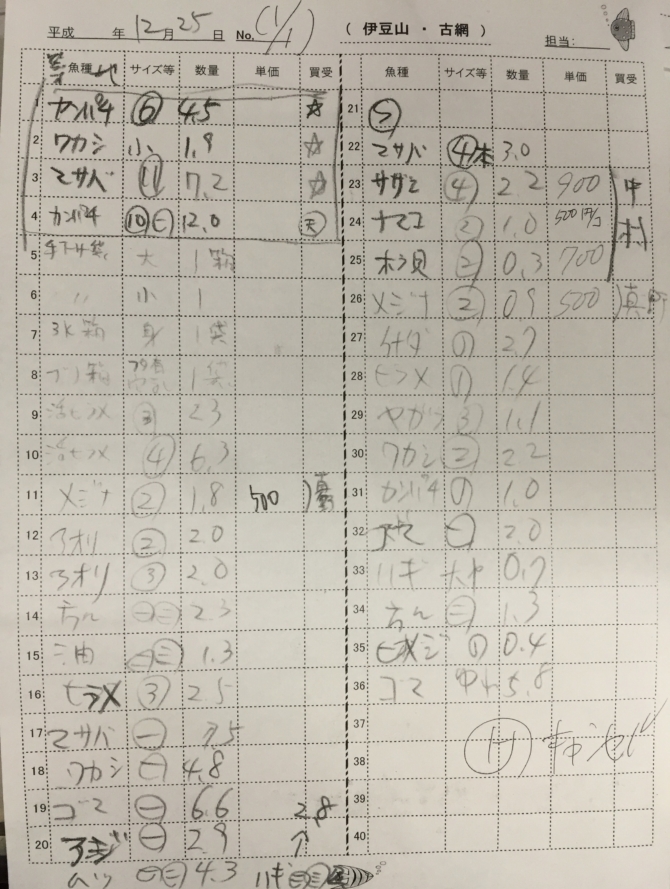 平成 年 12 月 25 日 No. (1/1) ( 伊豆山 ・ 古網 ) 担当:
魚種 サイズ等 数量 単価 買受
1 ヤンパチ ⑥ 4.5 ☆
2 ワカシ 小 1.9 ☆
3 マサバ ⑪ 7.2 ☆
4 カンパチ ⑩㊀ 12.0 天
5 大 1箱
6 〃 小 1
7 3K箱 身 1袋
8 ブリ箱 1袋
9 活ヒラメ ③ 2.3
10 活ヒラメ ④ 6.3
11 メジナ ② 1.8 500
12 アオリ ② 2.0
13 アオリ ③ 2.0
14 ㊀㊂ 2.3
15 ㊀㊂ 1.3
16 ヒラメ ③ 2.5
17 マサバ ㊀ 7.5
18 ワカシ ㊀ 4.8
19 ゴマ ㊀ 6.6 2.8
20 アジ ㊀ 2.9 ↑
ムツ ㊀㊂ 4.3 ハギ
魚種 サイズ等 数量 単価 買受
21
22 マサバ ④本 3.0
23 サザエ ④ 2.2 900 中
24 ナマコ ② 1.0 500円/コ
25 ホラ貝 ② 0.3 700
26 メジナ ② 0.9 500 真
27 ① 2.7
28 ヒラメ ① 1.4
29 ヤガラ ③ 1.1
30 ワカシ ㊂ 2.2
31 カンパチ ① 1.0
32 ㊀ 2.0
33 ハギ 大中 0.7
34 ㊂ 1.3
35 ヒメジ ① 0.4
36 ゴマ 中小 5.8
37
38
39
40